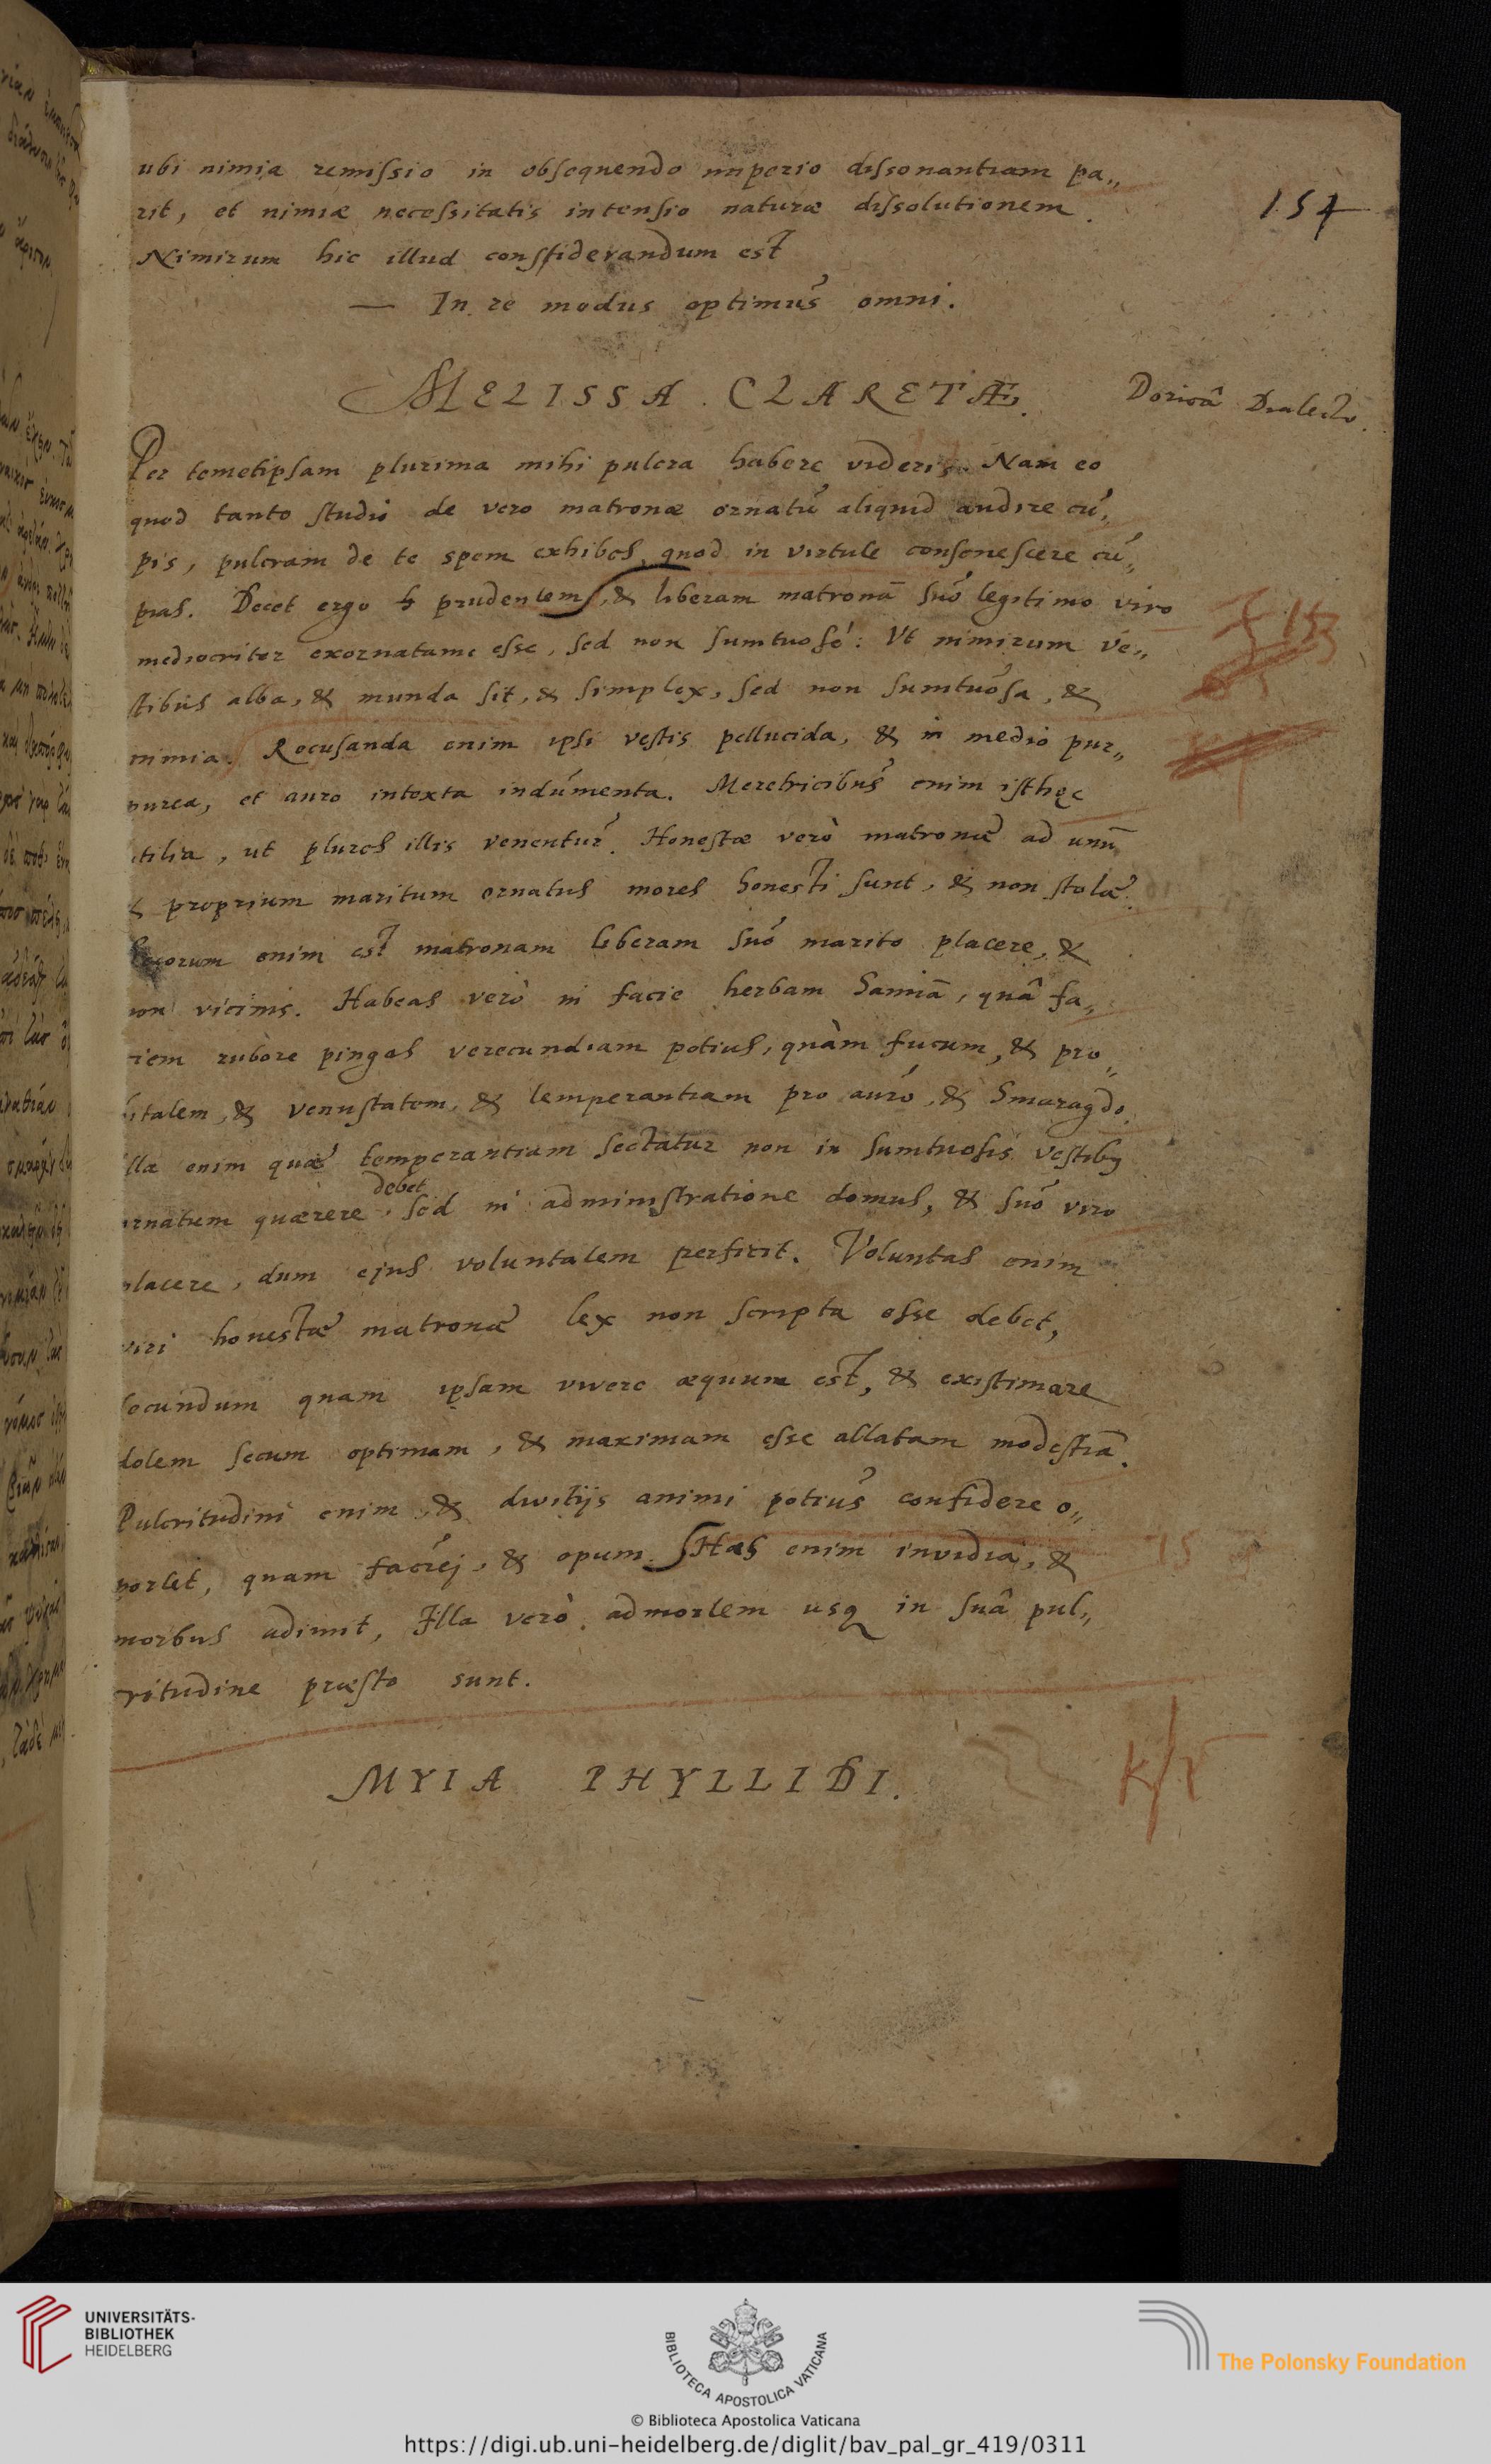 ubi nimia remissio in obsequendo imperio dissonantiam pa„
rit, et nimiæ necessitatis intensio naturæ dissolutionem.
Nimirum hic illud considerandum est
— In re modus optimus omni.
154
MELISSA CLARETÆ.
Doricâ Dialecto.
Per temetipsam plurima mihi pulcra habere videris. Nam eo
quod tanto studio de vero matronæ ornatu aliquid audire cu„
pis, pulcram de te spem exhibes, quod in virtute consenescere cu„
pias. Decet ergo prudentem, & liberam matronā suo legitimo viro
mediocriter exornatam esse, sed non sumtuose: Ut nimirum ve„
stibus alba, & munda sit, & simplex, sed non sumtuosa, &
nimia. Recusanda enim ipsi vestis pellucida, & in medio pur„
purea, et auro intexta indumenta. Meretricibus enim isthęc
utilia, ut plures illis venentur. Honestæ verò matronæ ad unū
& proprium maritum ornatus mores honesti sunt, & non stolæ.
Decorum enim est matronam liberam suo marito placere, &
non vicinis. Habeas verò in facie herbam Samiā, quâ fa„
ciem rubore pingas verecundiam potius, quàm fucum, & pro„
bitatem, & venustatem, & temperantiam pro auro, & Smaragdo.
Illa enim quæ temperantiam sectatur non in sumtuosis vestibꝰ
debet
ornatum quærere, sed in administratione domus, & suo viro
placere, dum ejus voluntatem perficit. Voluntas enim
viri honestæ matronæ lex non scripta esse debet,
secundum quam ipsam vivere æquum est, & existimare
dotem secum optimam, & maximam esse allatam modestiā.
Pulcritudini enim, & divitijs animi potius confidere o„
portet, quam faciej, & opum. Has enim invidia, &
morbus adimit, Illa verò ad mortem usq in suâ pul„
critudine præsto sunt.
f 153
15
MYIA PHYLLIDI.
UNIVERSITÄTS-
BIBLIOTHEK
HEIDELBERG
BIBLIOTECA APOSTOLICA VATICANA
The Polonsky Foundation
© Biblioteca Apostolica Vaticana
https://digi.ub.uni-heidelberg.de/diglit/bav_pal_gr_419/0311